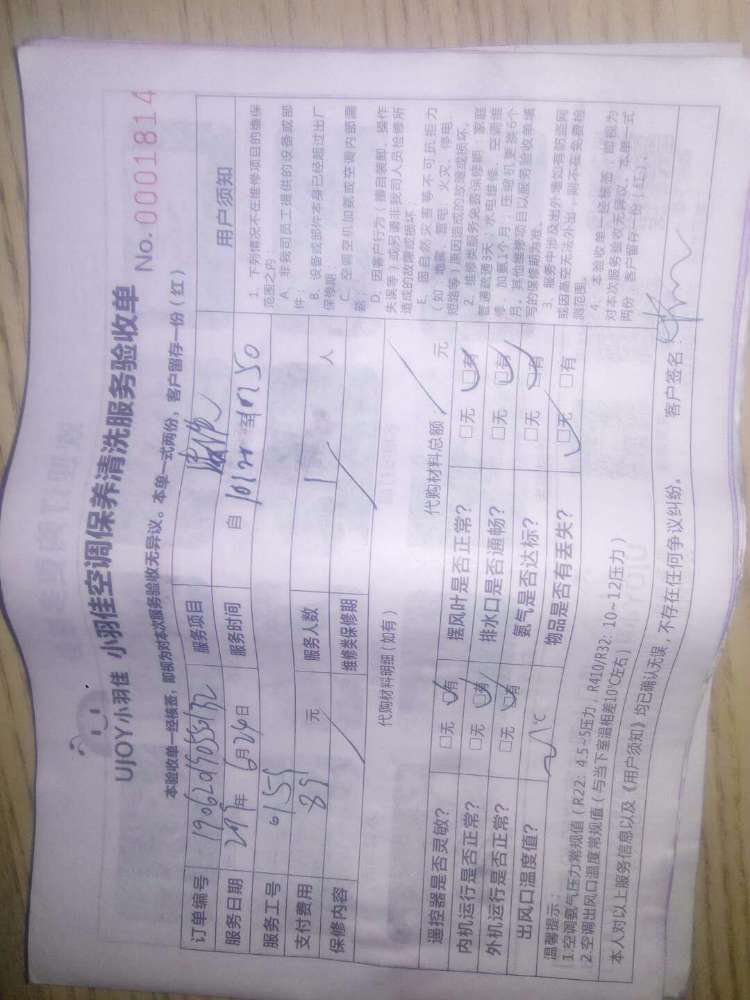 UJOY小羽佳 小羽佳空调保养清洗服务验收单
No. 0001814
本验收单一经核签，即视为对本次服务验收无异议。本单一式两份，客户留存一份（红）
订单编号 服务项目 用户须知
服务日期 年 6月24日 服务时间 自 至
服务工号 0155
支付费用 89 元 服务人数 1 人
保修内容 维修类保修期
代购材料明细（如有） 代购材料总额 元
遥控器是否灵敏？ □无 □有 摆风叶是否正常？ □无 □有
内机运行是否正常？ □无 □有 排水口是否通畅？ □无 □有
外机运行是否正常？ □无 □有 氨气是否达标？ □无 □有
出风口温度值？ ℃ 物品是否有丢失？ □无 □有
1、下列情况不在维修项目的维保
范围之内：
A、非我司员工提供的设备或部
件；
B、设备或部件本身已经超过出厂
保修期；
C、空调空机加氨或空调内部漏
D、因客户行为（擅自装卸、操作
失误等）或另请非我司人员检修所
造成的故障或损坏；
E、因自然灾害等不可抗拒力
（如：地震、雷电、火灾、停电、
短路等）原因造成的故障或损坏。
2、维修类服务免费保修期：家庭
管道疏通3天，水电维修、空调维
修、加氨1个月，压缩机更换6个
月，其他维修项目以服务验收单填
写的保修期为准。
3、服务中涉及出外墙如有防盗网
或因高空无法外出，则不在免费检
测范围。
4、本验收单一经核签，即视为
对本次服务验收无异议。本单一式
两份，客户留存一份（红）。
温馨提示：
1.空调氨气压力常规值（R22：4.5~5压力，R410/R32：10~12压力）
2.空调出风口温度常规值（与当下室温相差10℃左右）
本人对以上服务信息以及《用户须知》均已确认无误，不存在任何争议纠纷。 客户签名：